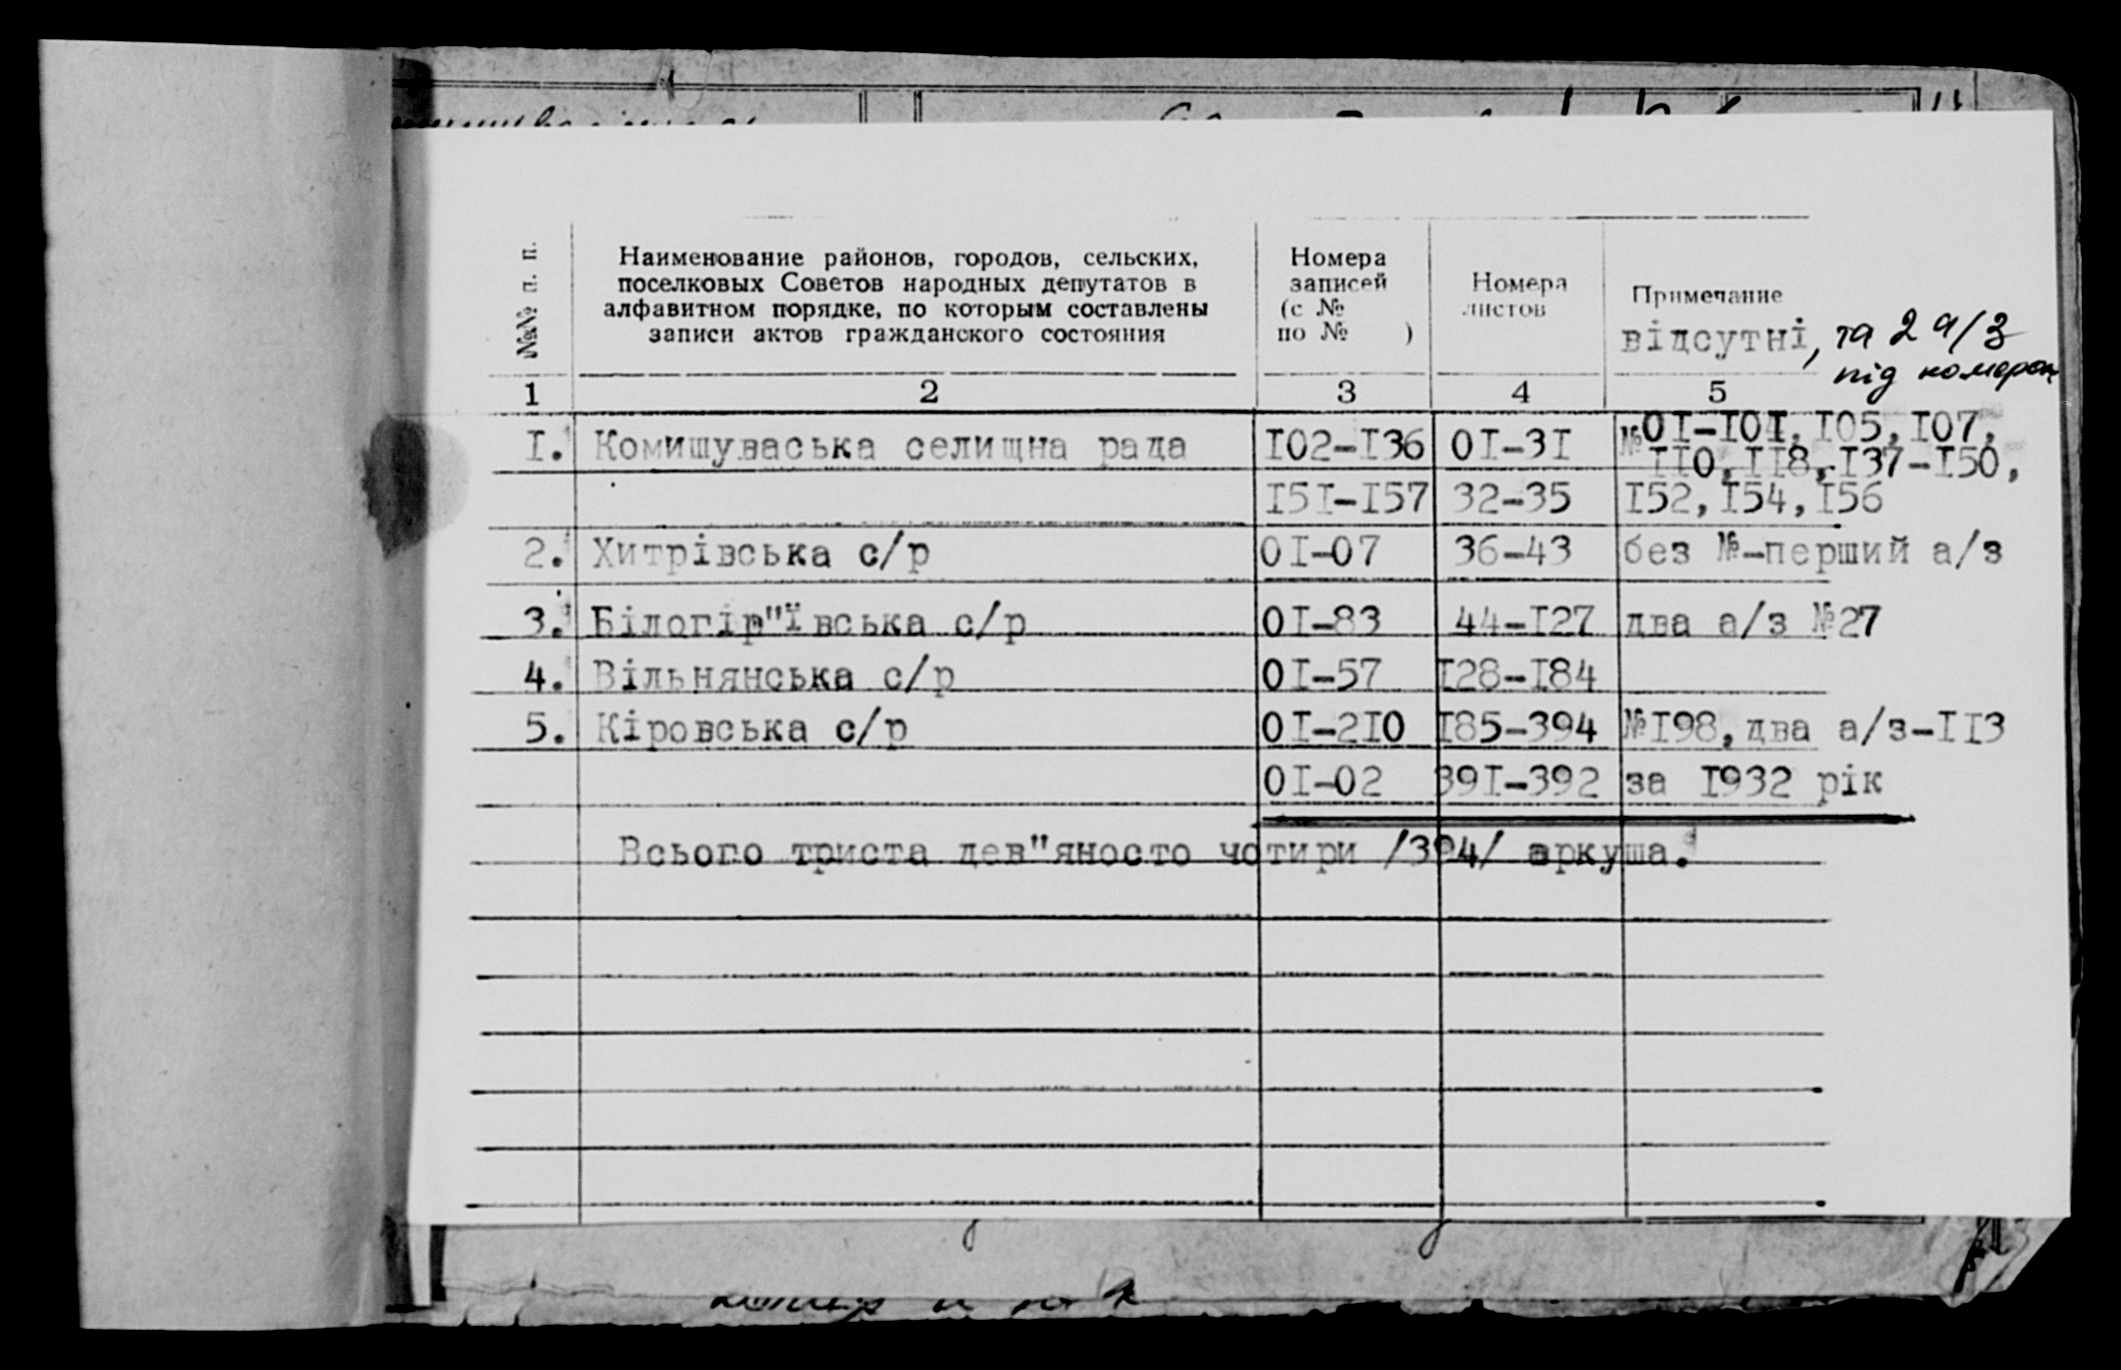 №№ п. п.
Наименование районов, городов, сельских,
поселковых Советов народных депутатов в
алфавитном порядке, по которым составлены
записи актов гражданского состояния
Номера
записей
(с №
по № )
Номера
листов
Примечание
відсутні, та 2 а/з
під номером
1 2 3 4 5
I. Комишуваська селищна рада I02-I36 0I-3I №0I-I0I, I05, I07,
II0, II8, I37-I50,
I5I-I57 32-35 I52, I54, I56
2. Хитрівська с/р 0I-07 36-43 без №-перший а/з
3. Білогір"ївська с/р 0I-83 44-I27 два а/з №27
4. Вільнянська с/р 0I-57 I28-I84
5. Кіровська с/р 0I-2I0 I85-394 №I98, два а/з-II3
0I-02 39I-392 за I932 рік
Всього триста дев"яносто чотири /394/ аркуша.